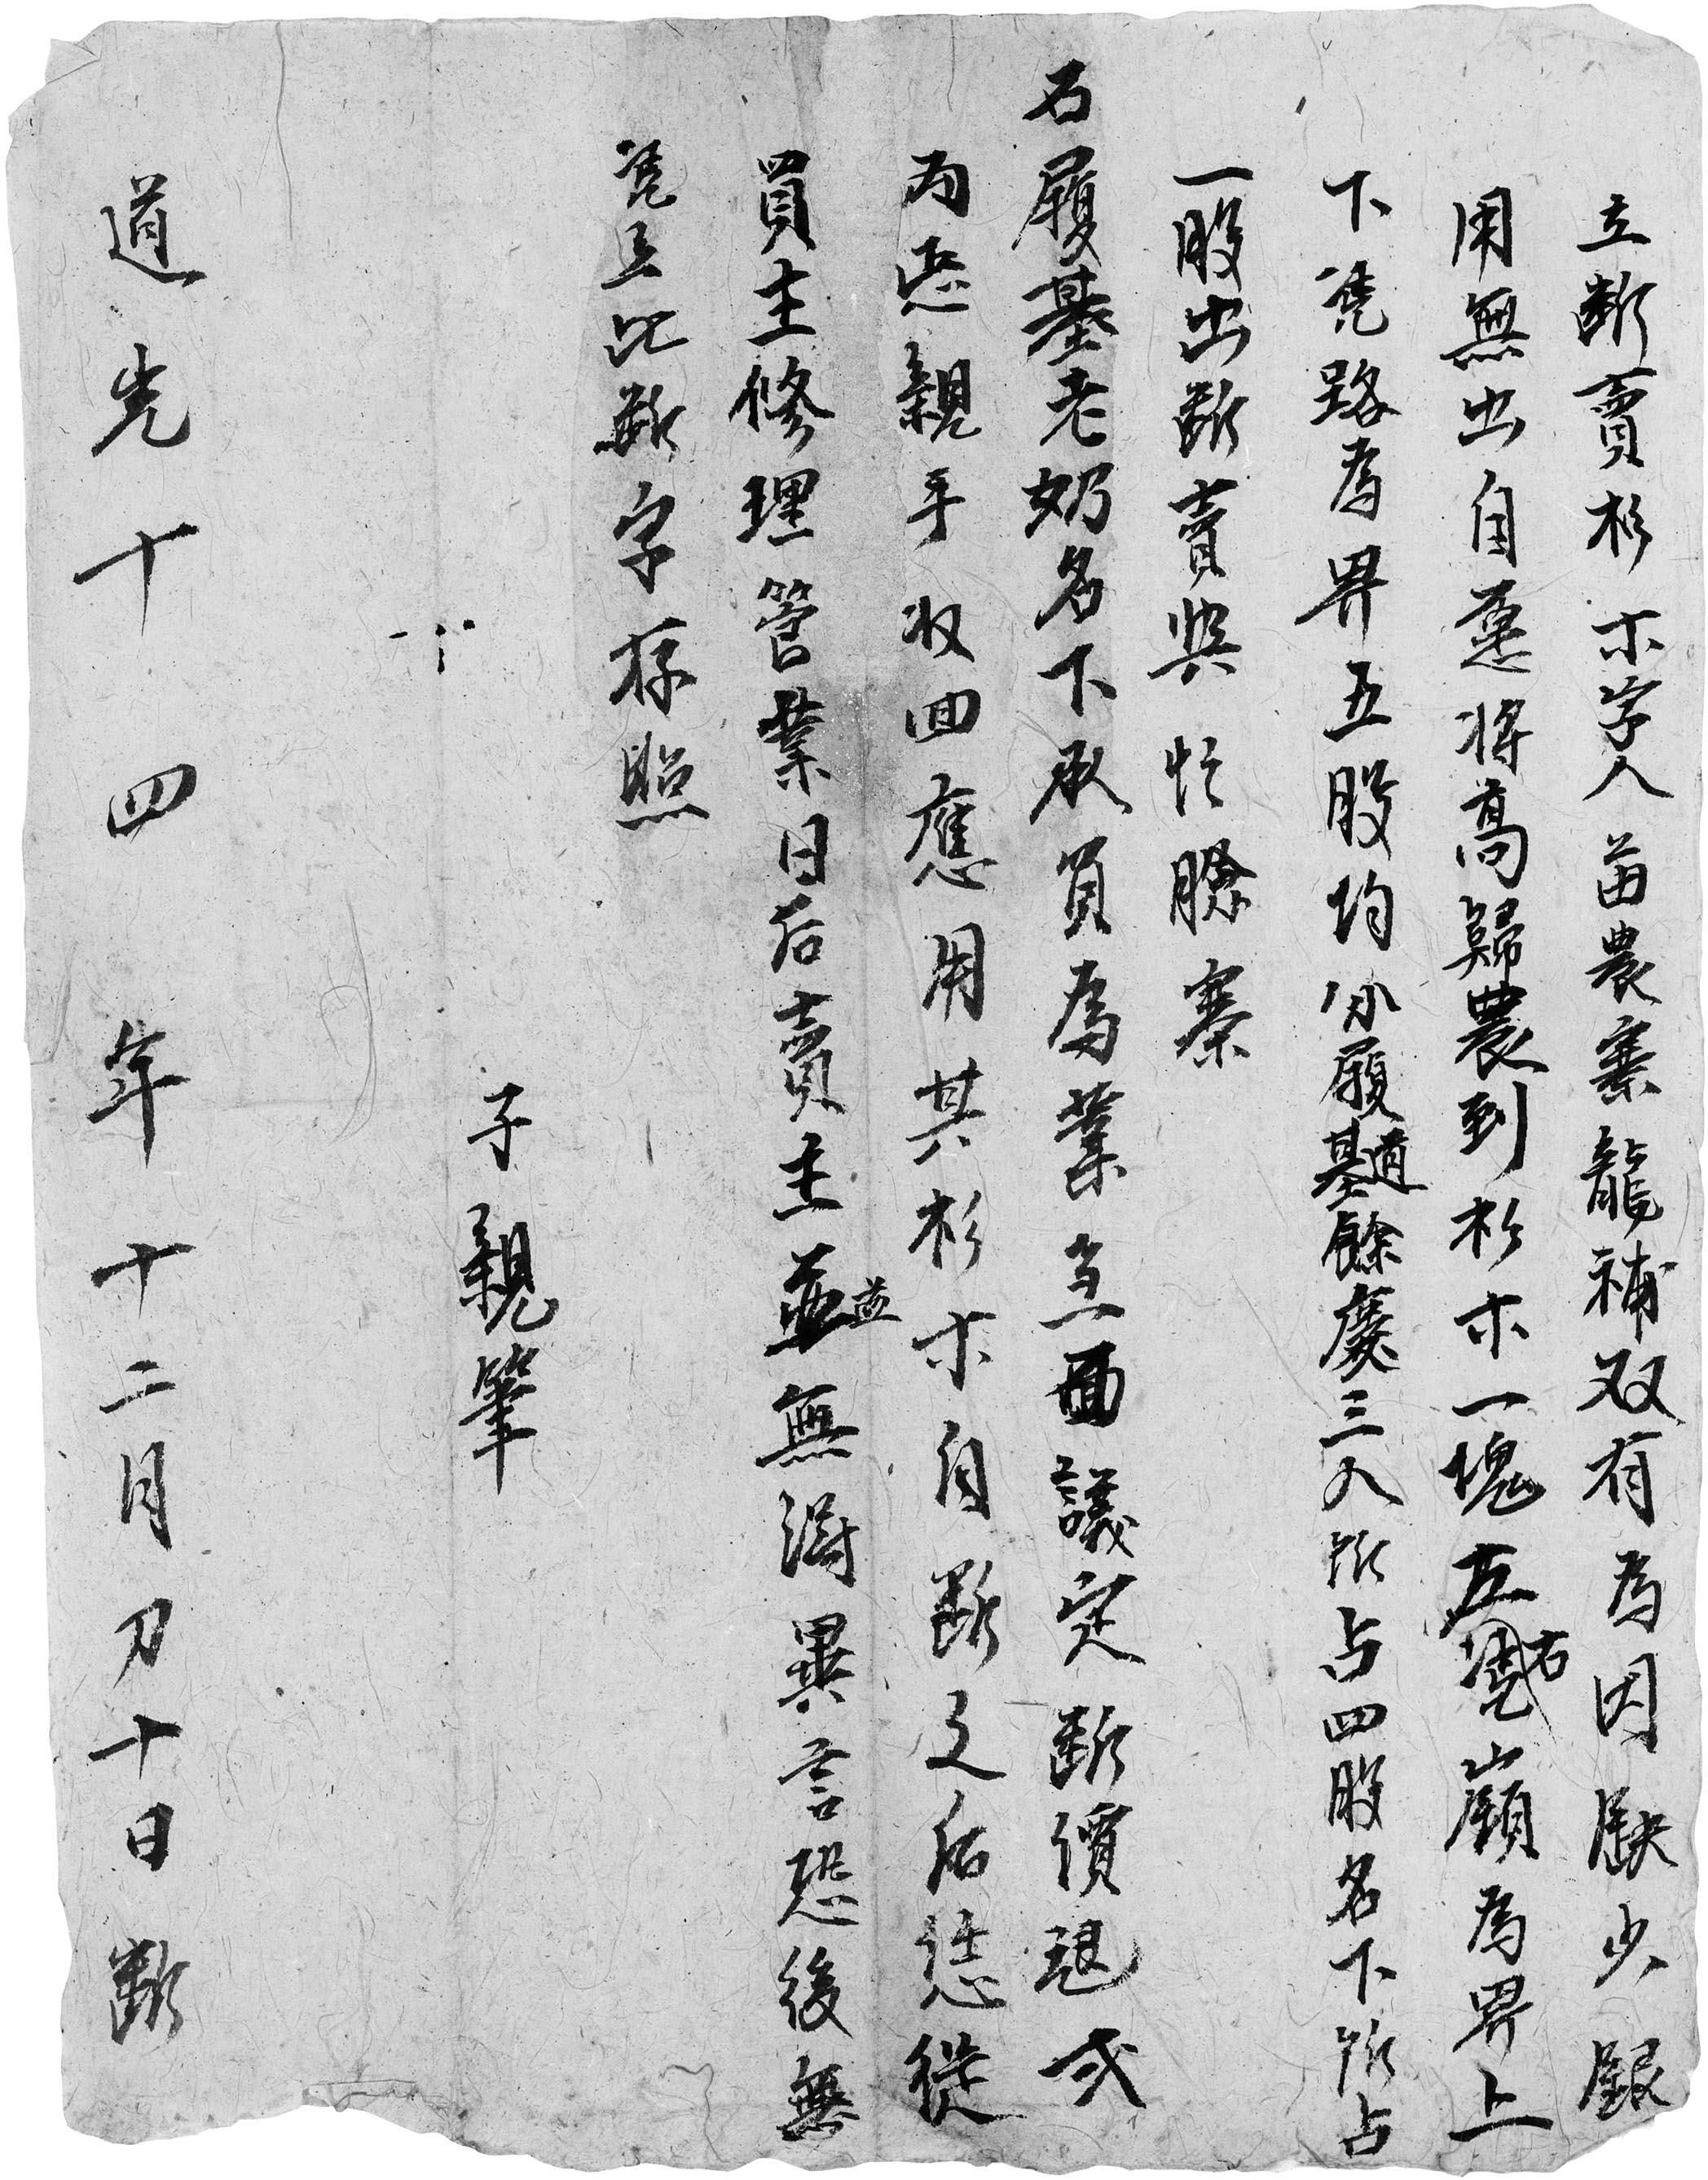 立断賣杉木字人苗農寨龍補双有為因缺少銀
用無出自愿将高歸農到杉木一塊左凭右嶺為界上
下凴路為界五股均分願基道餘慶三人所占四股名下所占
一股出断賣與忙臉寨
石履基老奶名下承買為業當面議定断價艮弍
両恁親手收回應用其杉木自断之后恁從
買主修理管業日后賣主並並無淂異言恐後無
凴立此断字存照
子親筆
道光十四年十二月初十日断